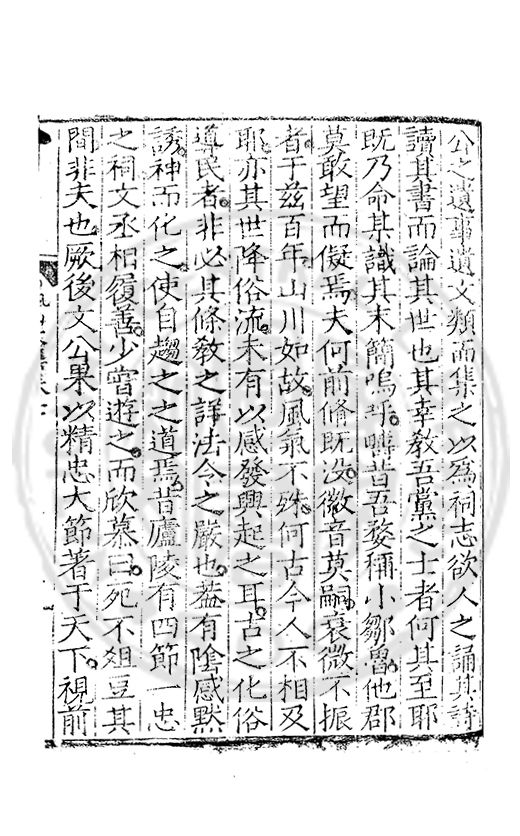 公之遺事遺文類而集之以爲祠志欲人之誦其詩
讀其書而論其世也其幸教吾黨之士者何其至耶
既乃命某識其末簡嗚呼疇昔吾婺稱小鄒魯他郡
莫敢望而儗焉夫何前脩既没徽音莫嗣衰微不振
者于兹百年山川如故風氣不殊何古今人不相及
耶亦其世降俗流未有以感發興起之耳古之化俗
導民者非必其條教之詳法令之嚴也葢有陰感默
誘神而化之使自趨之之道焉昔廬陵有四節一忠
之祠文丞相履善少嘗遊之而欣慕曰死不俎豆其
間非夫也厥後文公果以精忠大節著于天下視前